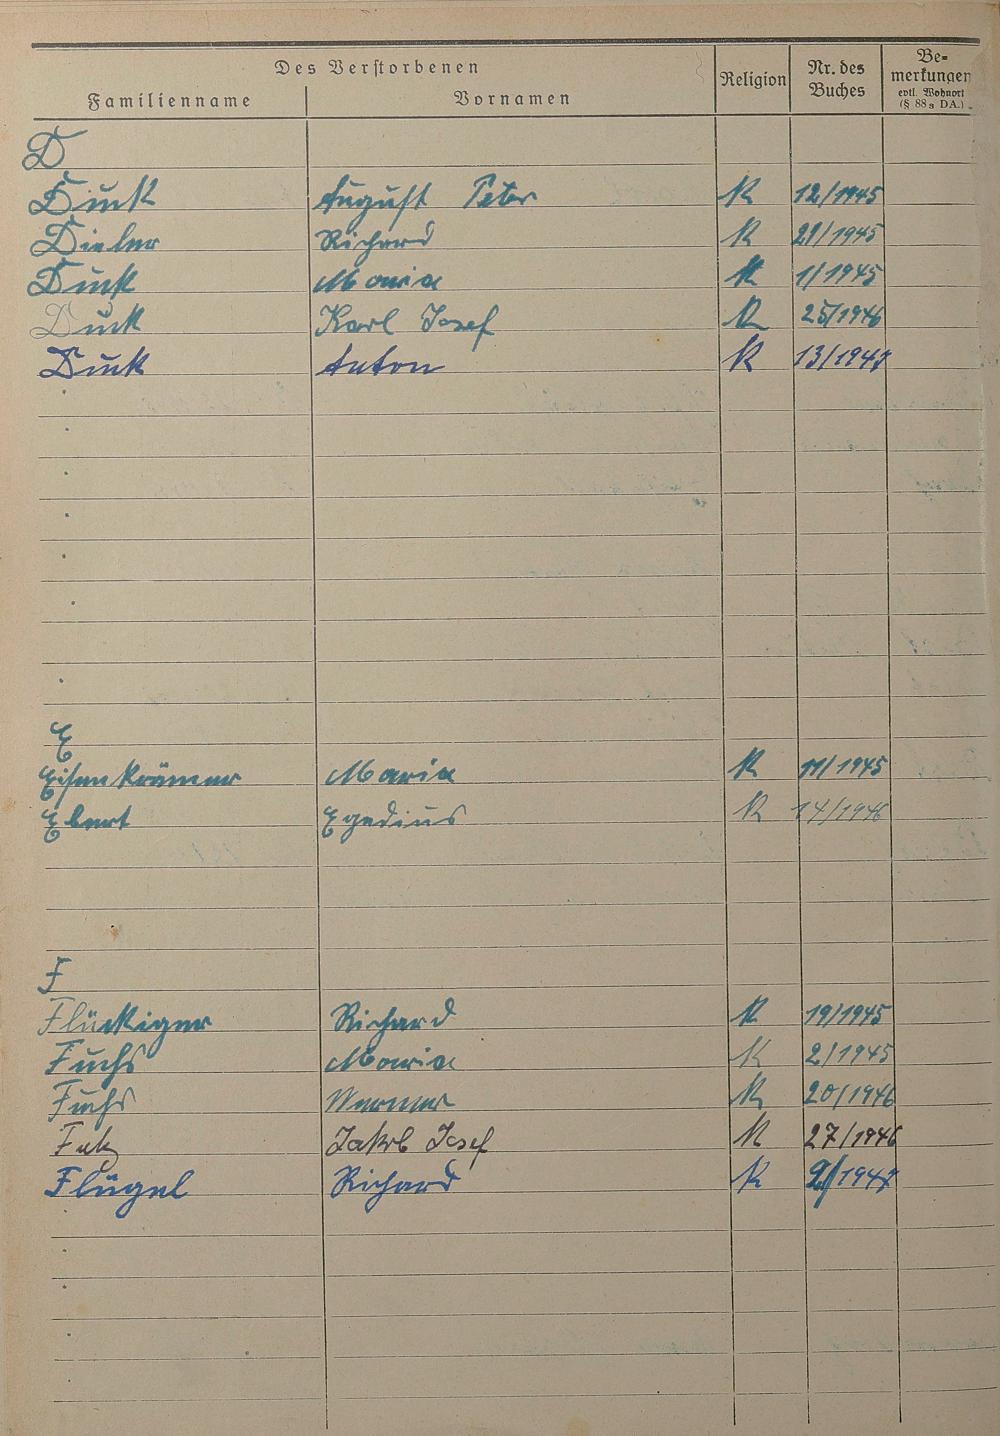 Des Verstorbenen
Familienname Vornamen Religion Nr. des Buches Bemerkungen evtl. Wohnort (§ 88 a DA.)
D
August Peter K 12/1945
Richard K 21/1945
Maria K 1/1945
Duck Karl Josef K 25/1946
Anton K 13/1947
E
Eisenkrämer Maria K 11/1945
Ebert Egedius K 14/1946
F
Flückiger Richard K 19/1945
Fuchs Maria K 2/1945
Fuchs Werner K 20/1946
Jakob Josef K 27/1946
Flügel Richard K 2/1947